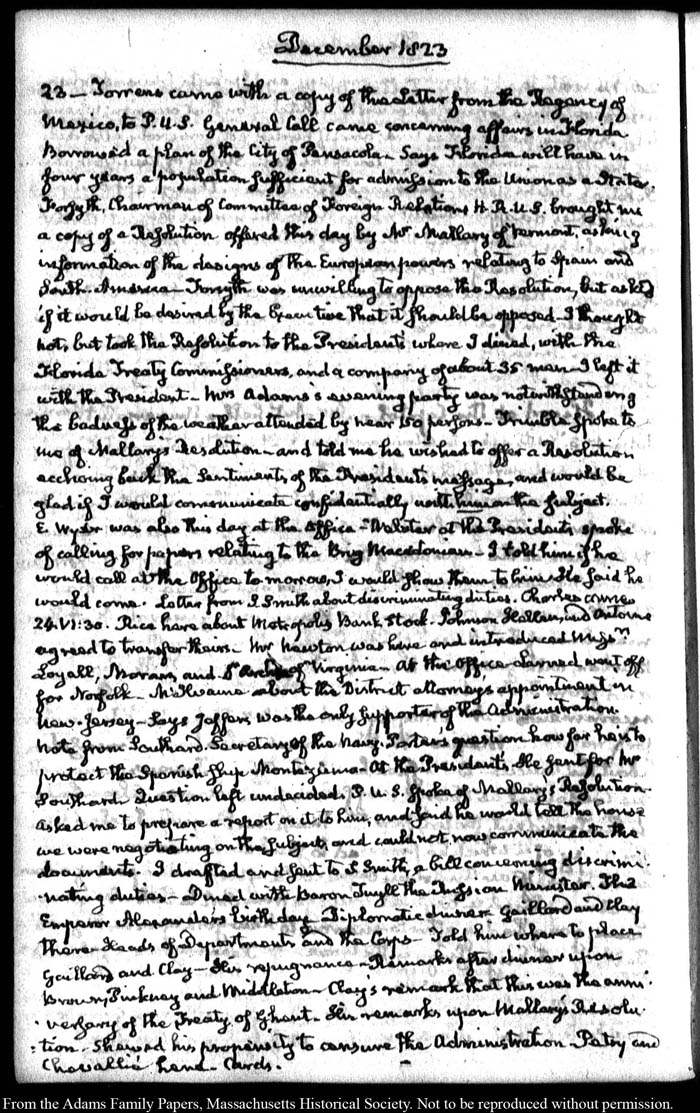 December 1823
23 – Torrens came with a copy of the Letter from the Regency of
Mexico, to P.U.S. General Call came concerning affairs in Florida
Borrowed a plan of the City of Pensacola. Says Florida will have in
four years a population sufficient for admission to the Union as a State.
Forsyth, Chairman of Committee of Foreign Relations H.R.U.S. brought me
a copy of a Resolution offered this day by Mr Mallary of Vermont, asking
information of the designs of the European powers relating to Spain and
South-America – Forsyth was unwilling to oppose the Resolution, but asked
if it would be desired by the Executive that it should be opposed. I thought
not, but took the Resolution to the Presidents where I dined, with the
Florida Treaty Commissioners, and a company of about 35 men – I left it
with the President – Mrs Adams's evening party was notwithstanding
the badness of the weather attended by near 150 persons – Trimble spoke to
me of Mallary's Resolution – and told me he wished to offer a Resolution
ecchoing back the Sentiments, of the Presidents message, and would be
glad if I would communicate confidentially with him on the subject.
E. Wyer was also this day at the office – Webster at the Presidents spoke
of calling for papers relating to the Brig Macedonian – I told him if he
would call at the Office to morrow, I would show them to him. He said he
would come. Letter from S. Smith about discriminating duties. Charles came
24. VI:30. Rice here about Metropolis Bank Stock. Johnson Hellen, and Antoine
agreed to transfer theirs – Mr Newton was here and introduced Messrs
Loyall, Moran, and of Virginia – At the Office – Larned went off
for Norfolk – McIlvaine about the District Attorneys appointment in
New-Jersey – Says Jeffers was the only supporter of the Administration.
Note from Southard. Secretary of the Navy. Porter's question how far he is to
protect the Spanish Ship Montezuma – At the Presidents. He sent for Mr
Southard – Question left undecided. P.U.S. spoke of Mallary's Resolution.
asked me to prepare a report on it to him, and said he would tell the house
we were negotiating on the subject, and could not now communicate the
documents. I drafted and sent to S. Smith, a bill concerning discrimi-
-nating duties – Dined with Baron Tuyll the Russian Minister. The
Emperor Alexanders birth day Diplomatic dinner. Gaillard and Clay
there. Heads of Departments and the Corps – Told him where to place
Gaillard and Clay – His repugnance – Remarks after dinner upon
Brown, Pinkney and Middleton – Clay's remark that this was the anni-
-versary of the Treaty of Ghent. His remarks upon Mallary's Resolu
-tion. Shewed his propensity to censure the Administration – Petry and
Chevallié here – Cards.
From the Adams Family Papers, Massachusetts Historical Society. Not to be reproduced without permission.